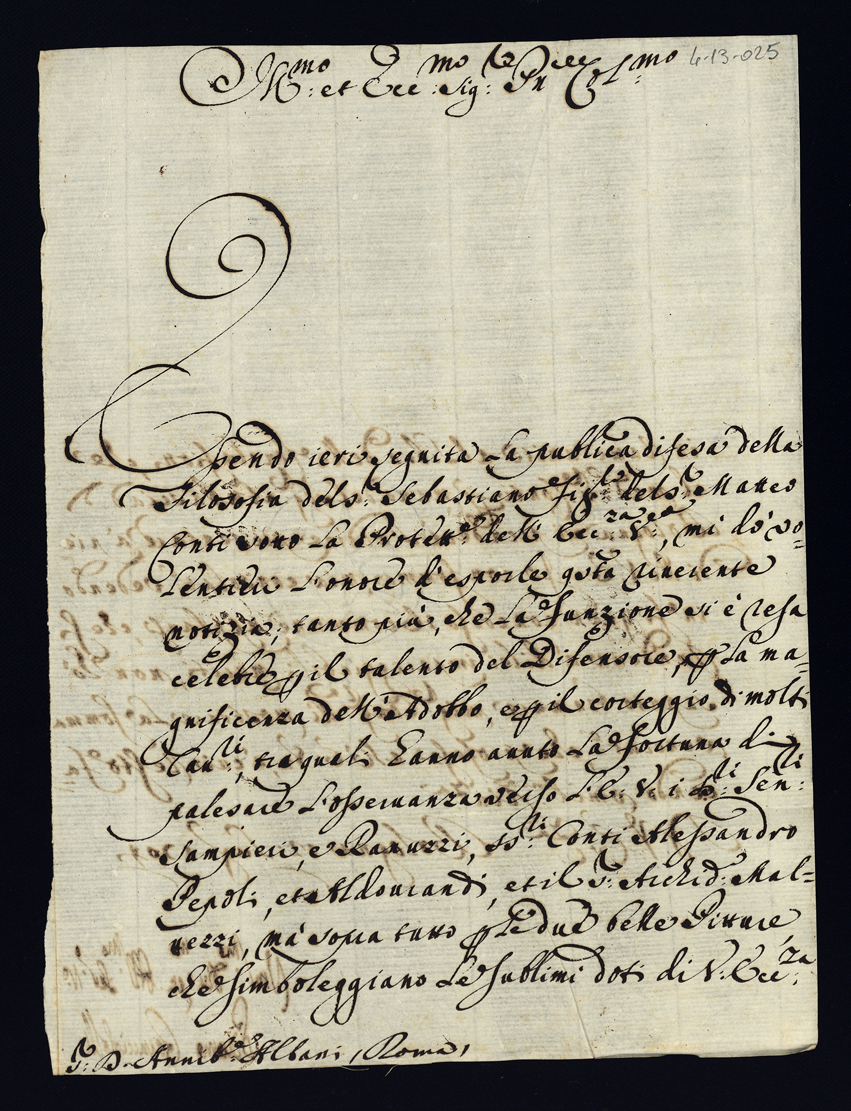 Ill:mo et Ecc:mo Sig:re Pn Col:mo 4-13-025
Essendo ieri seguita la publica difesa della
Filosofia del S:r Sebastiano fig:lo del S:r Matteo
Conti sotto la Protett:e dell' Ecc:za V:a, mi dò vo=
lentieri l'onore d'esporle q.sta riverente
notizia, tanto più, che la funzione si è resa
celebre p il talento del Difensore, p la ma=
gnificenza dell'Adobbo, e p il corteggio di molti
Cau:li, tra quali hanno auuto la fortuna di
palesare l'osseruanza verso l'E: V: i SS:ri Sen:ri
Sampieri, e Ranuzzi, SS:ri Conti Alessandro
Pepoli, et Aldourandi, et il S:r Archid: Mal=
uezzi, mà sopra tutto p le due belle Pitture,
che simboleggiano le sublimi doti di V: Ecc:za
S:r D. Annib:e Albani, Roma,